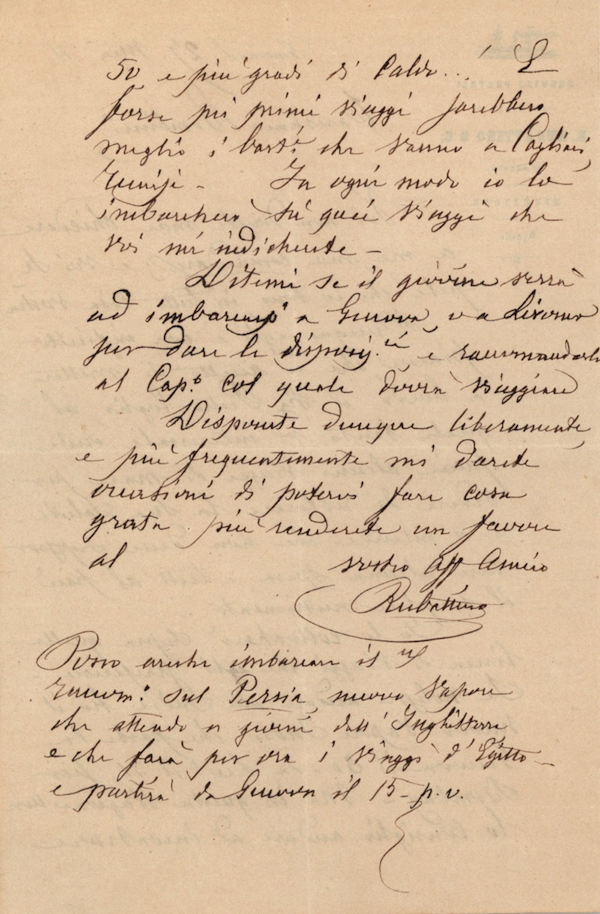 50 e più gradi di Caldo...! E
forse pei primi viaggi sarebbero
meglio i bast.i che vanno a Cagliari,
Tunisi - In ogni modo io lo
imbarcherò su quei viaggi che
voi mi indicherete -
Ditemi se il giovine verrà
ad imbarcarsi a Genova, o a Livorno
per dare le disposiz.ni, e raccomandarlo
al Cap.o col quale dovrà viaggiare
Disponete dunque liberamente,
e più frequentemente mi darete
occasioni di potervi fare cosa
grata più renderete un favore
al vostro Aff Amico
Rubattino
Posso anche imbarcare il
raccom.o sul Persia, nuovo vapore
che attendo a giorni dall'Inghilterra
e che farà per ora i viaggi d'Egitto -
e partirà da Genova il 15 p.v.